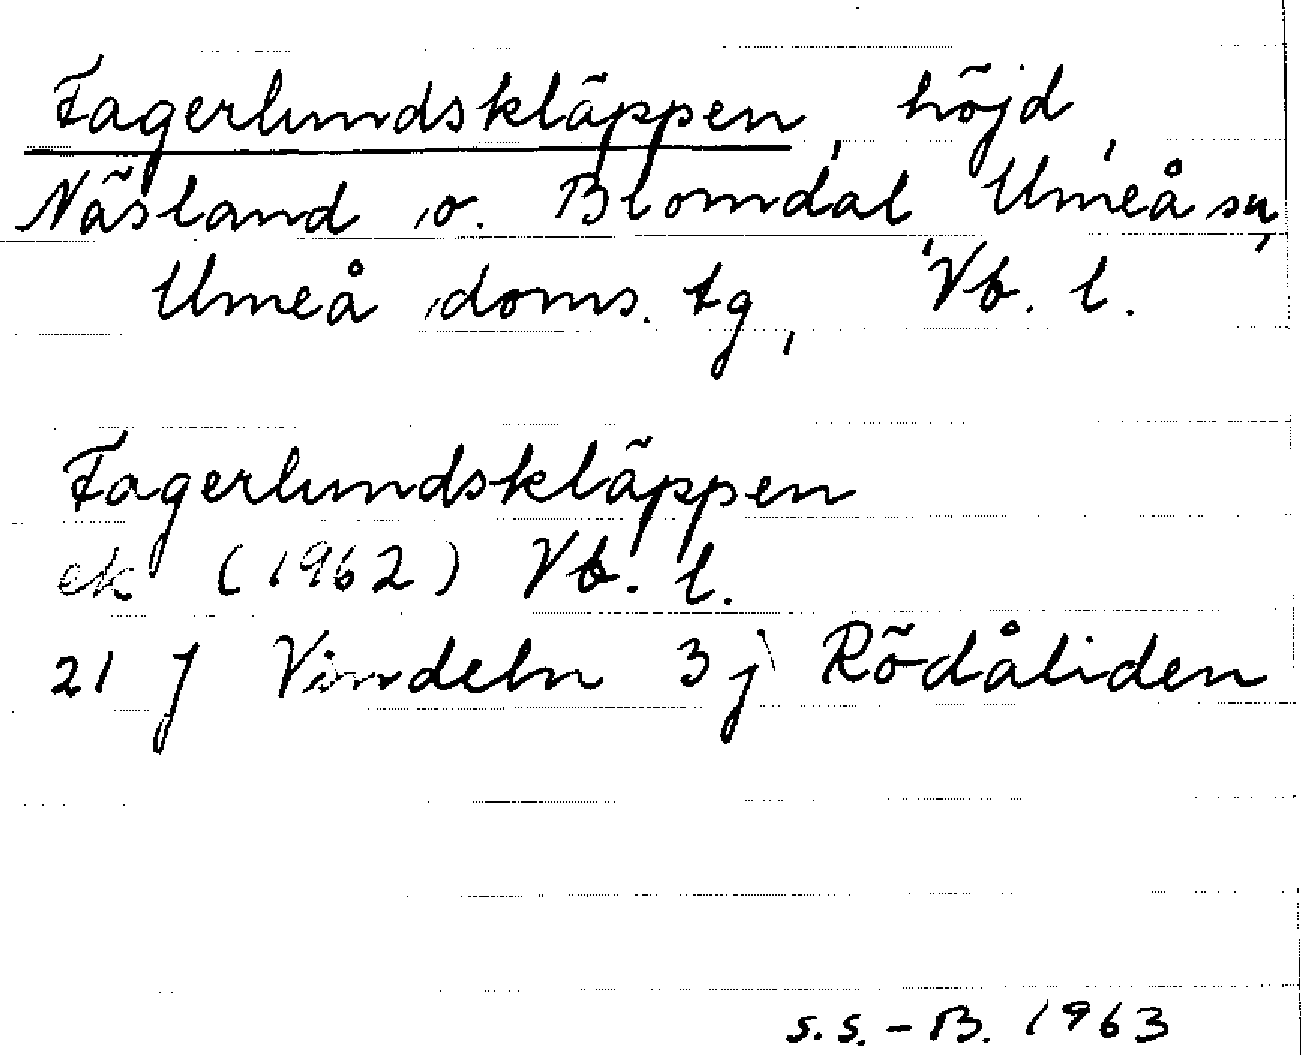 Fagerlundskläppen, höjd,
Näsland o. Blomdal, Umeå sn,
Umeå doms. tg, Vb. l.
Fagerlundskläppen
ek (1962) Vb. l.
21 J Vindeln 3j Rödåliden
S.S.-B. 1963